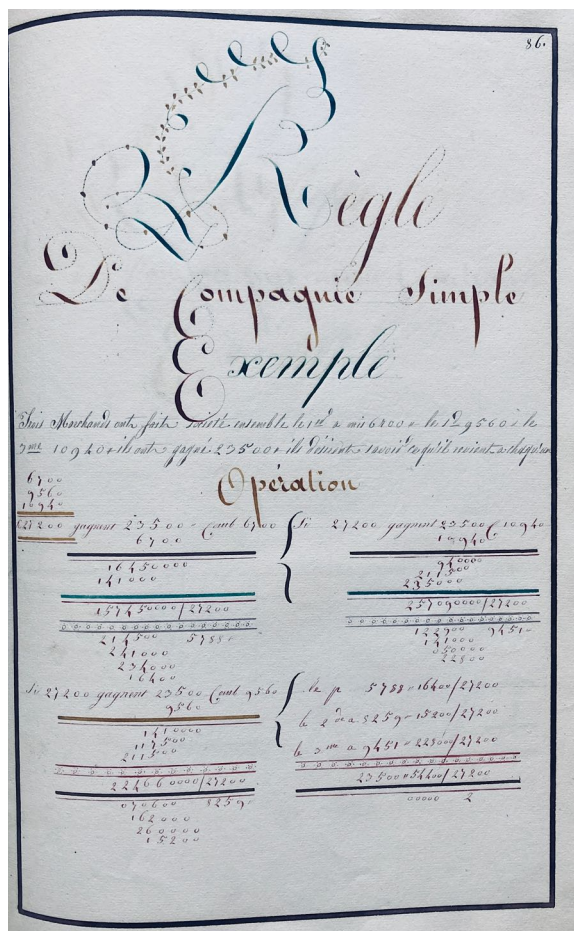 86.
Règle
De Compagnie Simple
Exemple
Trois Marchands ont faite ensemble le 1er a mis 6700 le 9560 le
3me 10940 ils ont gagné 23500 ils désirent savoir ce qu'il revient a chaqu'un
Opération
6700
9560
10940
27200 gagnent 23500 Comb 6700
6700
16450000
141000
157450000/27200
214500 5788
241000
234000
16400
Si 27200 gagnent 23500 C 10940
10940
940000
211500
235000
257090000/27200
122900 9451
141000
050000
22800
Si 27200 gagnent 23500 Comb 9560
9560
1410000
117500
211500
224660000/27200
070600 8259
162000
260000
15200
le p 5788 16400/27200
le 2 a 8259 15200/27200
le 3me a 9451 22800/27200
23500 54400/27200
00000 2